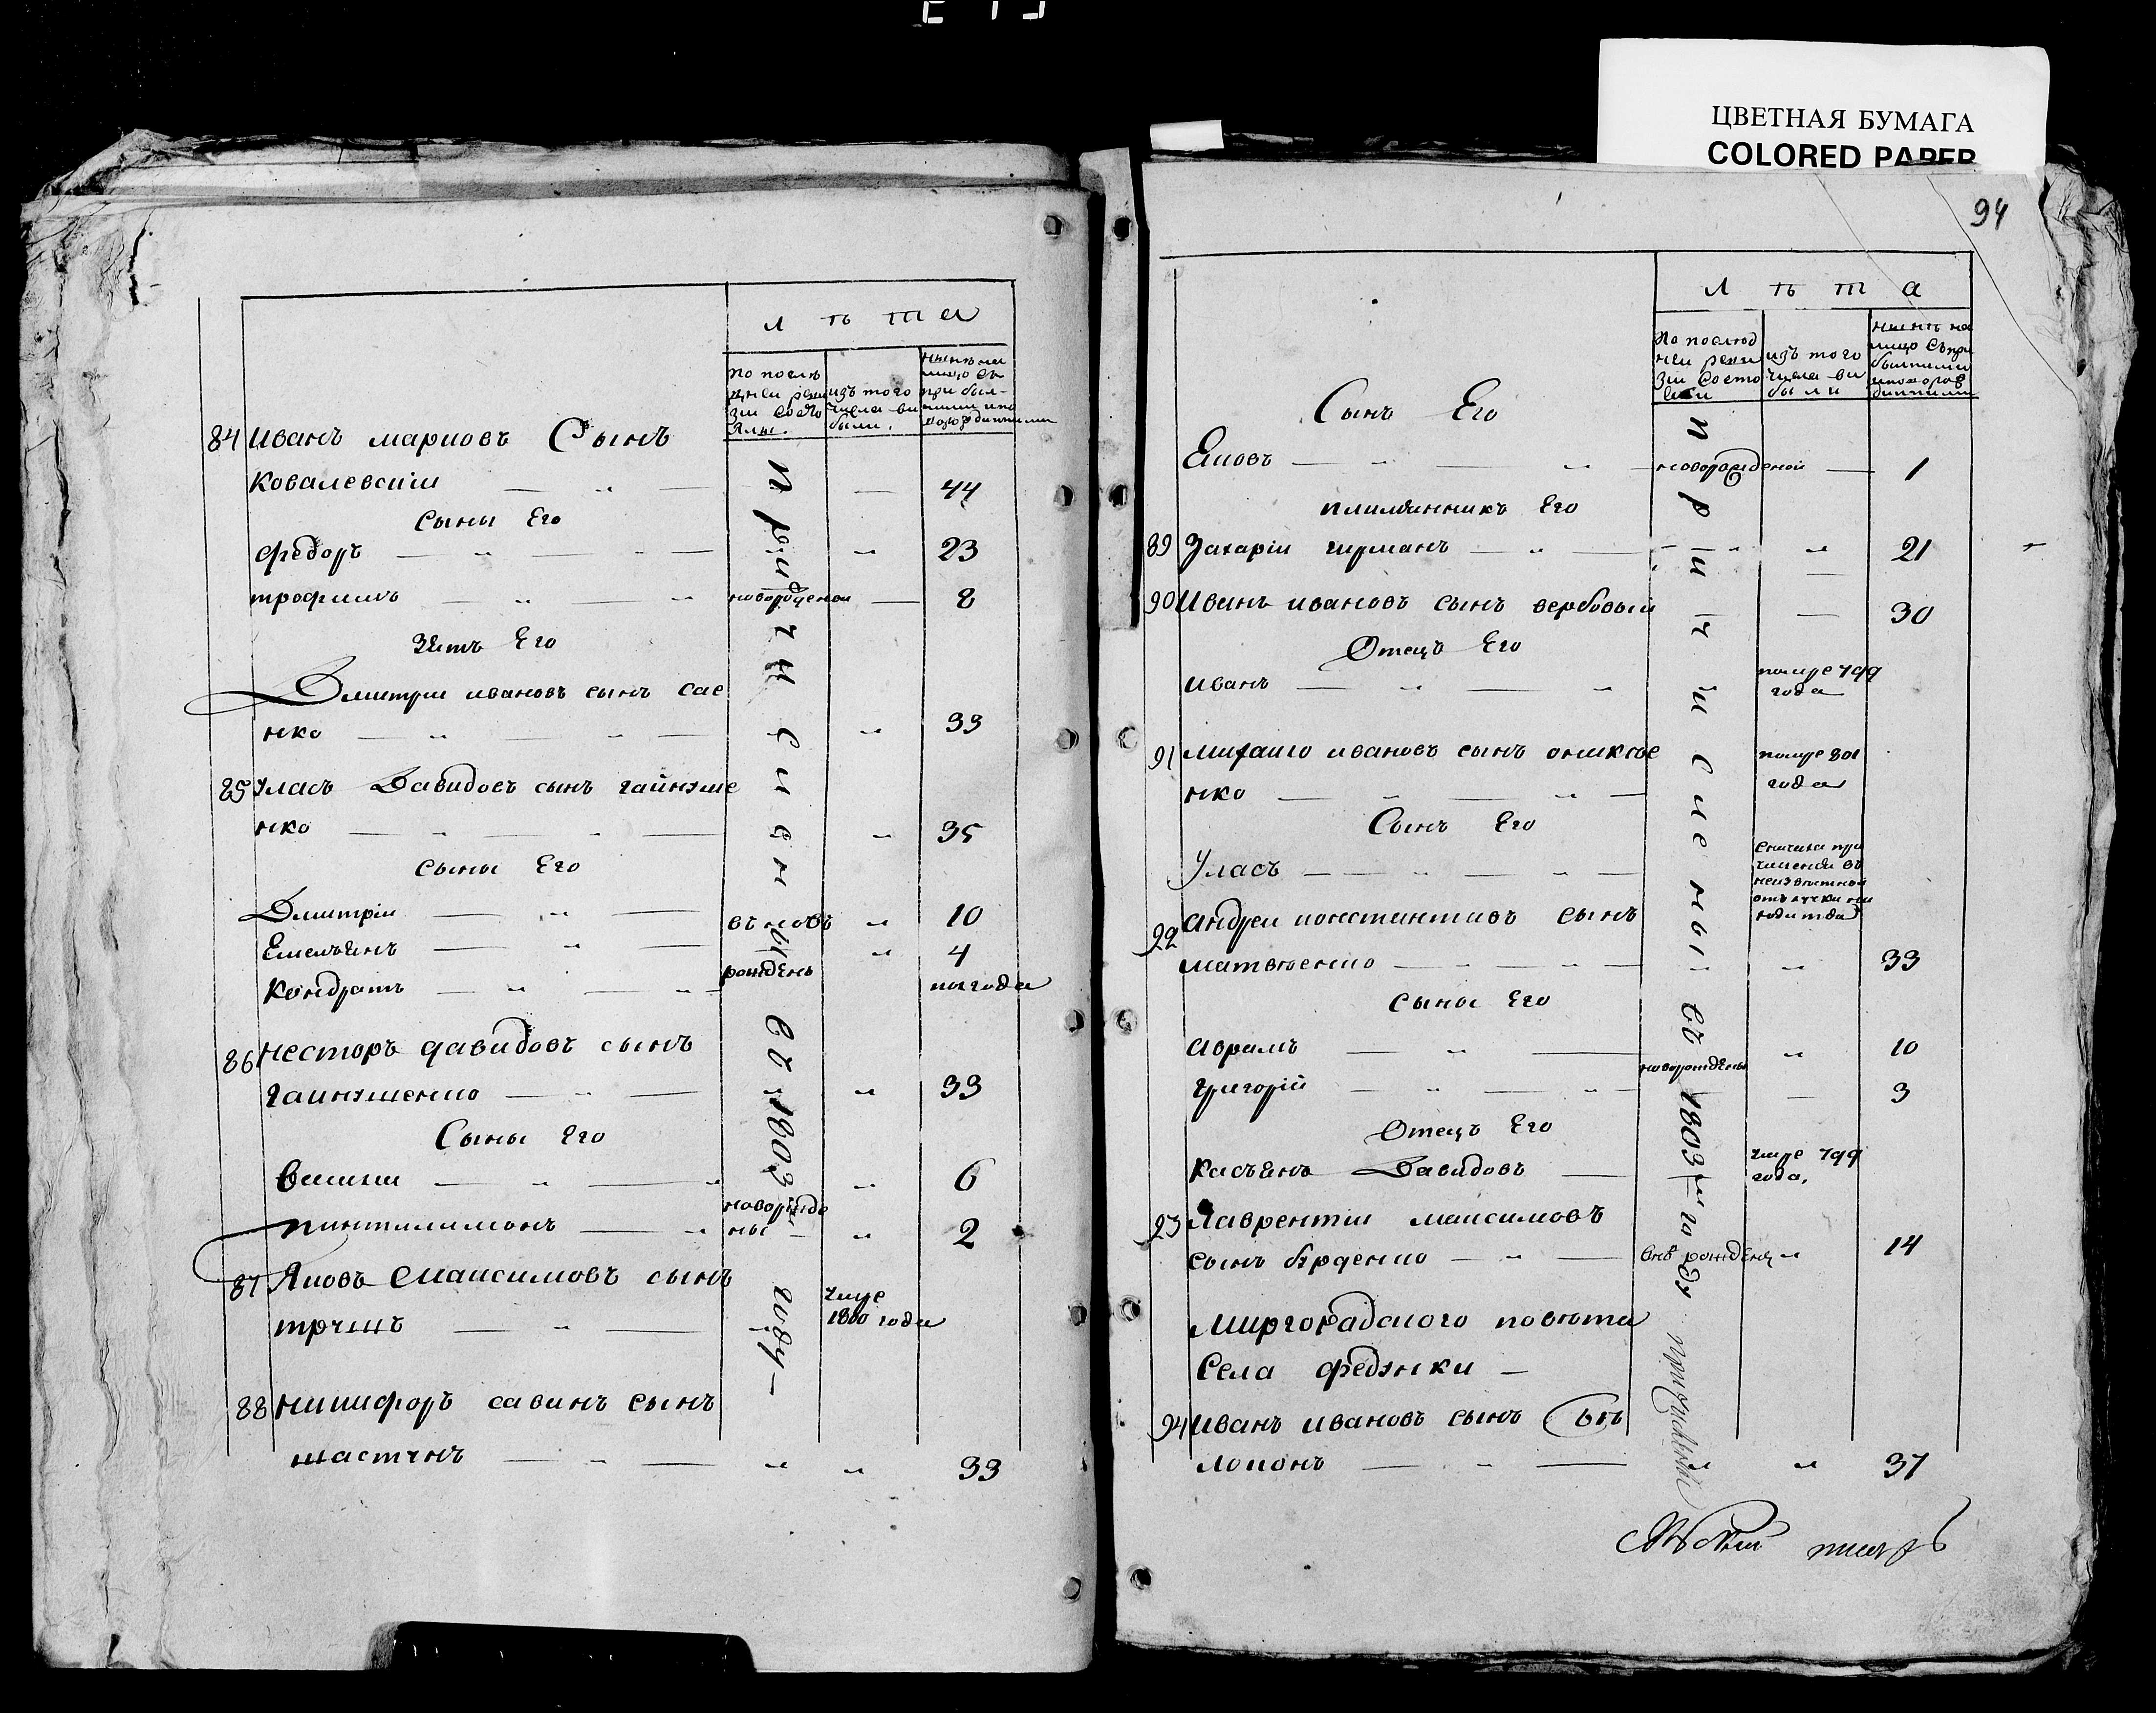 ЦВЕТНАЯ БУМАГА
COLORED PAPER
94
Л ѣ т а
по послѣ
дней реви
зіи состо
яли.
изъ того
числа вы
были.
нынѣ на
лицо съ
прибыл-
ми и но
ворожденними
84 Иванъ марковъ Сынъ
Ковалевскій — „ — — 44
Сыны Его
Федоръ — „ — „ 23
трофимъ — „ — „ новорожденой — 8
Зять Его
Дмитрій ивановъ сынъ сае
нко — „ — „ — „ 33
85 Уласъ Давидовъ сынъ гайнуше
нко — „ — „ — „ 35
сыны Его
Дмитрій — „ — „ 10
Емельянъ — „ — въновъ „ 4
Кондратъ — „ — „ рожденъ полгода
86 Несторъ давидовъ сынъ
гаинушенко — „ — „ 33
Сыны Его
— „ — „ „ 6
пинтилимонъ — „ новорожде
ны — „ 2
87 Яковъ Максимовъ сынъ
— „ — умре
1800 года
88 Никифоръ савинъ сынъ
— „ — „ „ 33
причисены въ 1803 м году —
Л ѣ т а
По послѣд
ней реви
зіи состо
яли
изъ того
числа вы
были
нынѣ на
лицо съ при
былими
и новорож
динними
Сынъ Его
Яковъ — „ — „ — новорожденой — 1
племянникъ Его
89 Захарій — „ — „ „ 21
90 Иванъ ивановъ сынъ вербовый — 30
Отецъ Его
Иванъ — „ — „ помре 799
года
91 Михайло ивановъ сынъ
нко — „ — „ — помре 801
года
Сынъ Его
Уласъ — „ — „ —
неизвѣстной
92 Андрей константиновъ сынъ
матвѣенко — „ — „ — „ 33
сыны Его
Аврамъ — „ — „ 10
Григорій — „ — „ — новорожденъ — 3
Отецъ Его
Касъянъ Давидовъ — умре 799
года,
93 Лаврентій максимовъ
сынъ — „ — „ 14
Миргорадского повѣта
Села федунки —
94 Иванъ ивановъ сынъ
— „ — „ „ 37
причисены въ 1803 м году
писарь